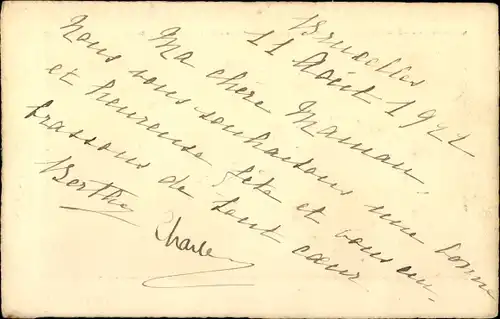 Bruxelles
11 Août 1922
Ma chère Maman
Nous vous souhaitons une bonne
et heureuse fête et vous em-
brassons de tout cœur
Berthe Charles